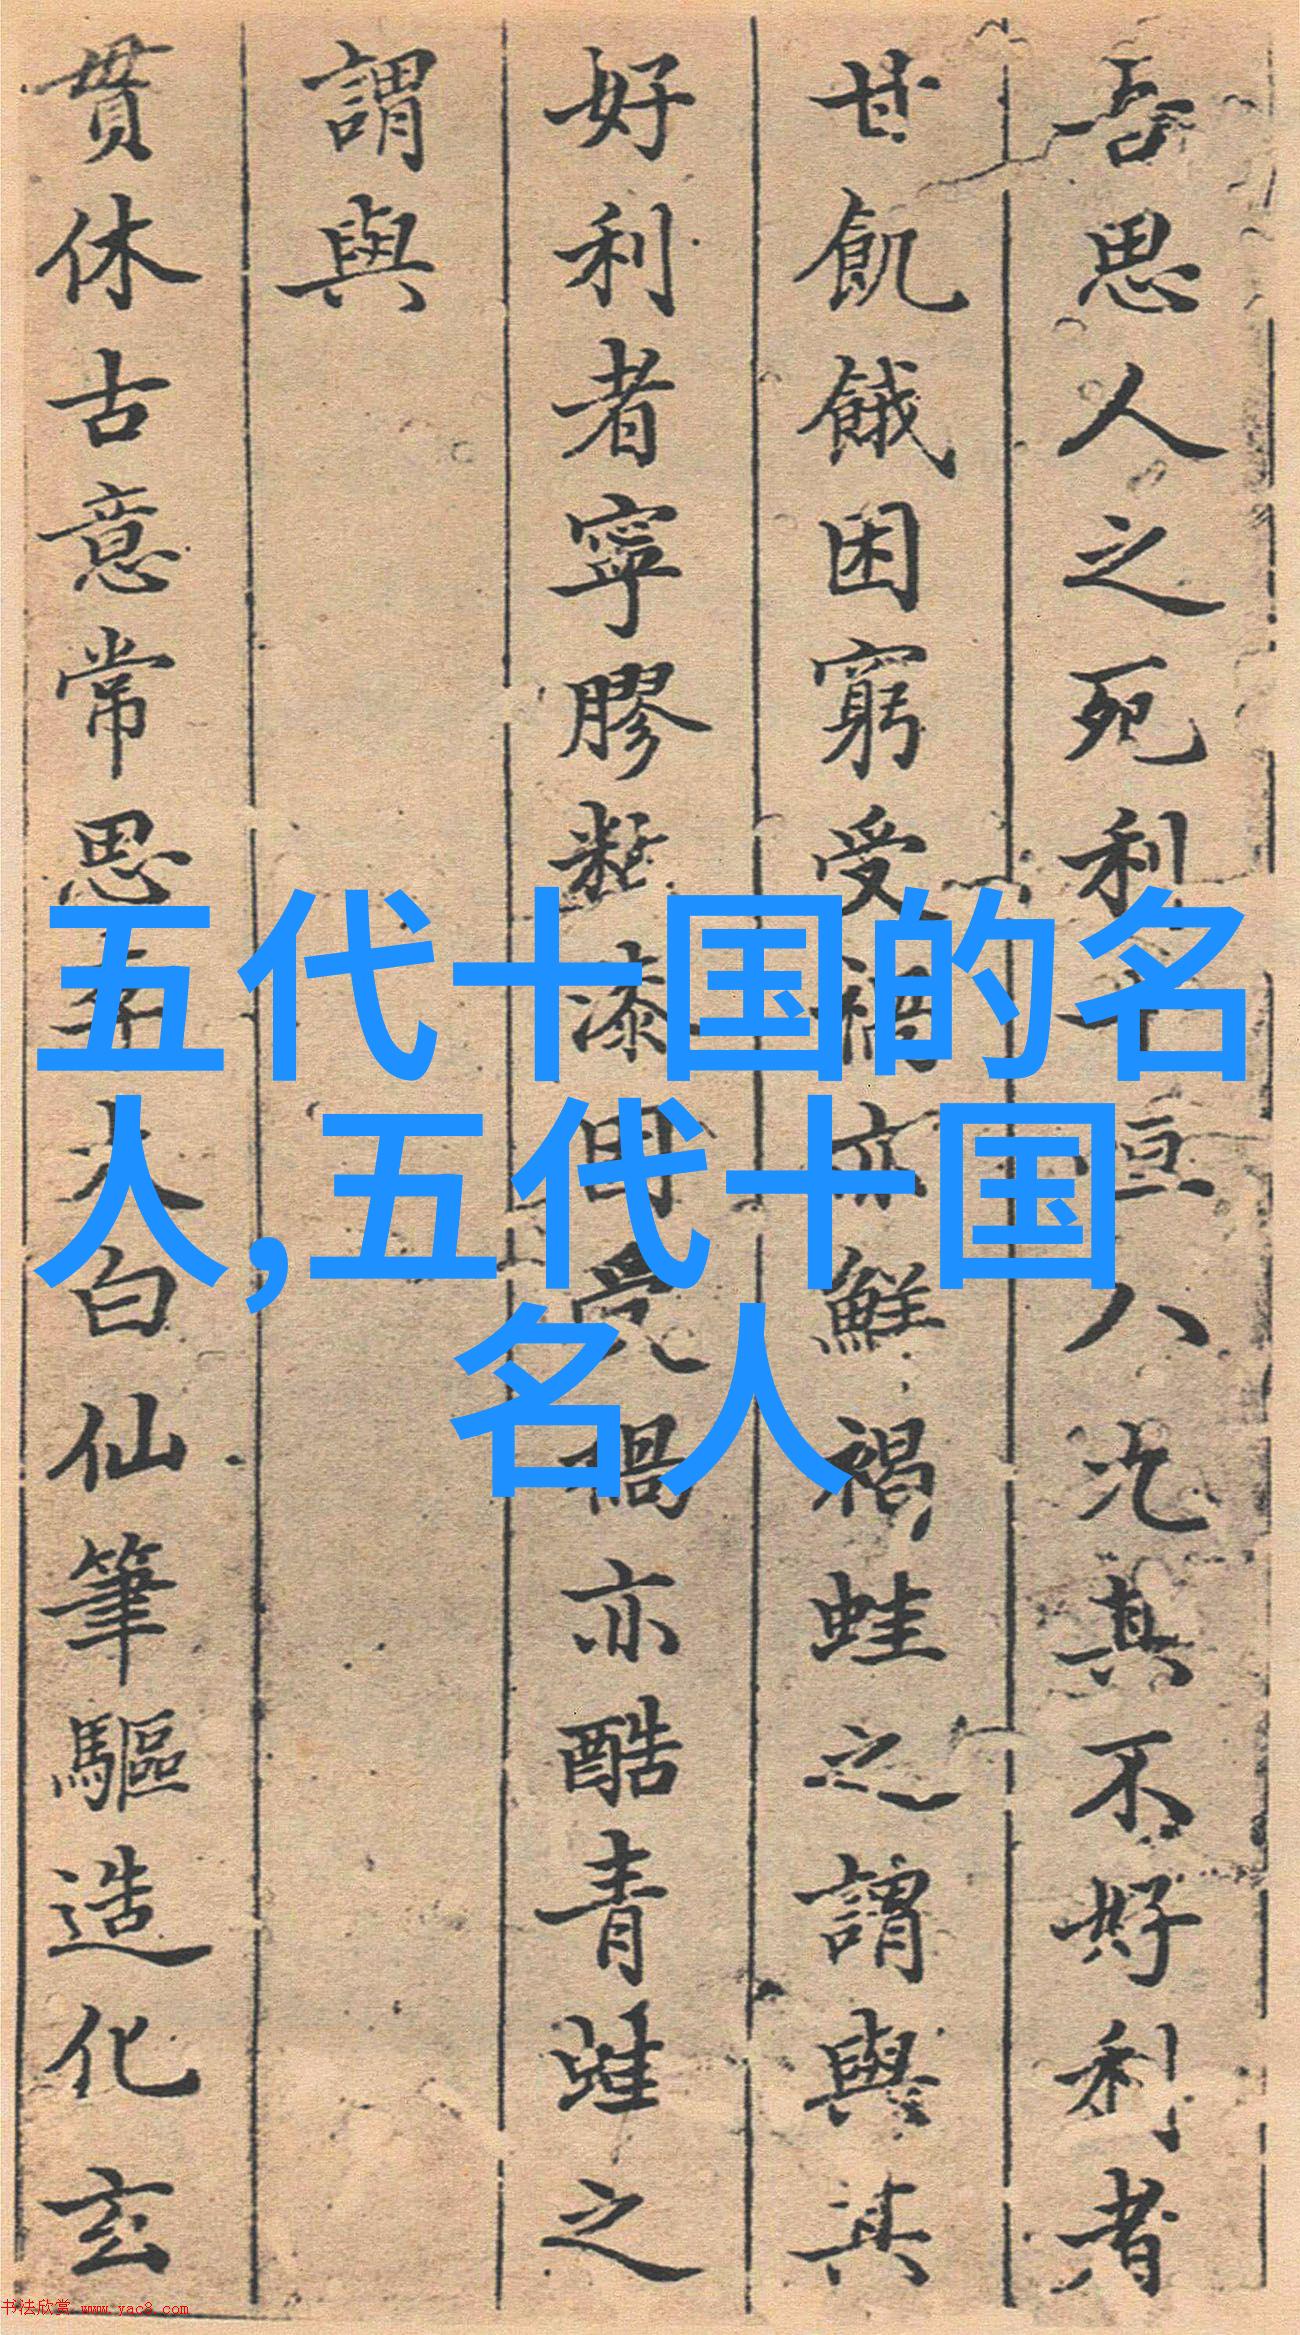 吾思人之死利十恒八其不好利者
甘飢餓困窮受禍亦鮮褐蛙之謂與其
好利者寧膠黏漆禍亦酷青蛙之
謂與
貫休古意常思李太白仙筆驅造化玄
五代十国的名
人,五代十国
名人
书法欣赏 www.yac8.com